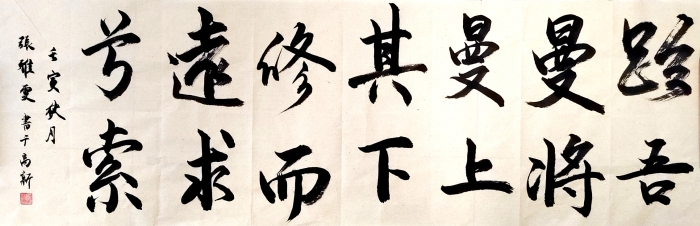 路曼曼其修遠兮
吾將上下而求索
壬寅秋月
張雅雯書于高新